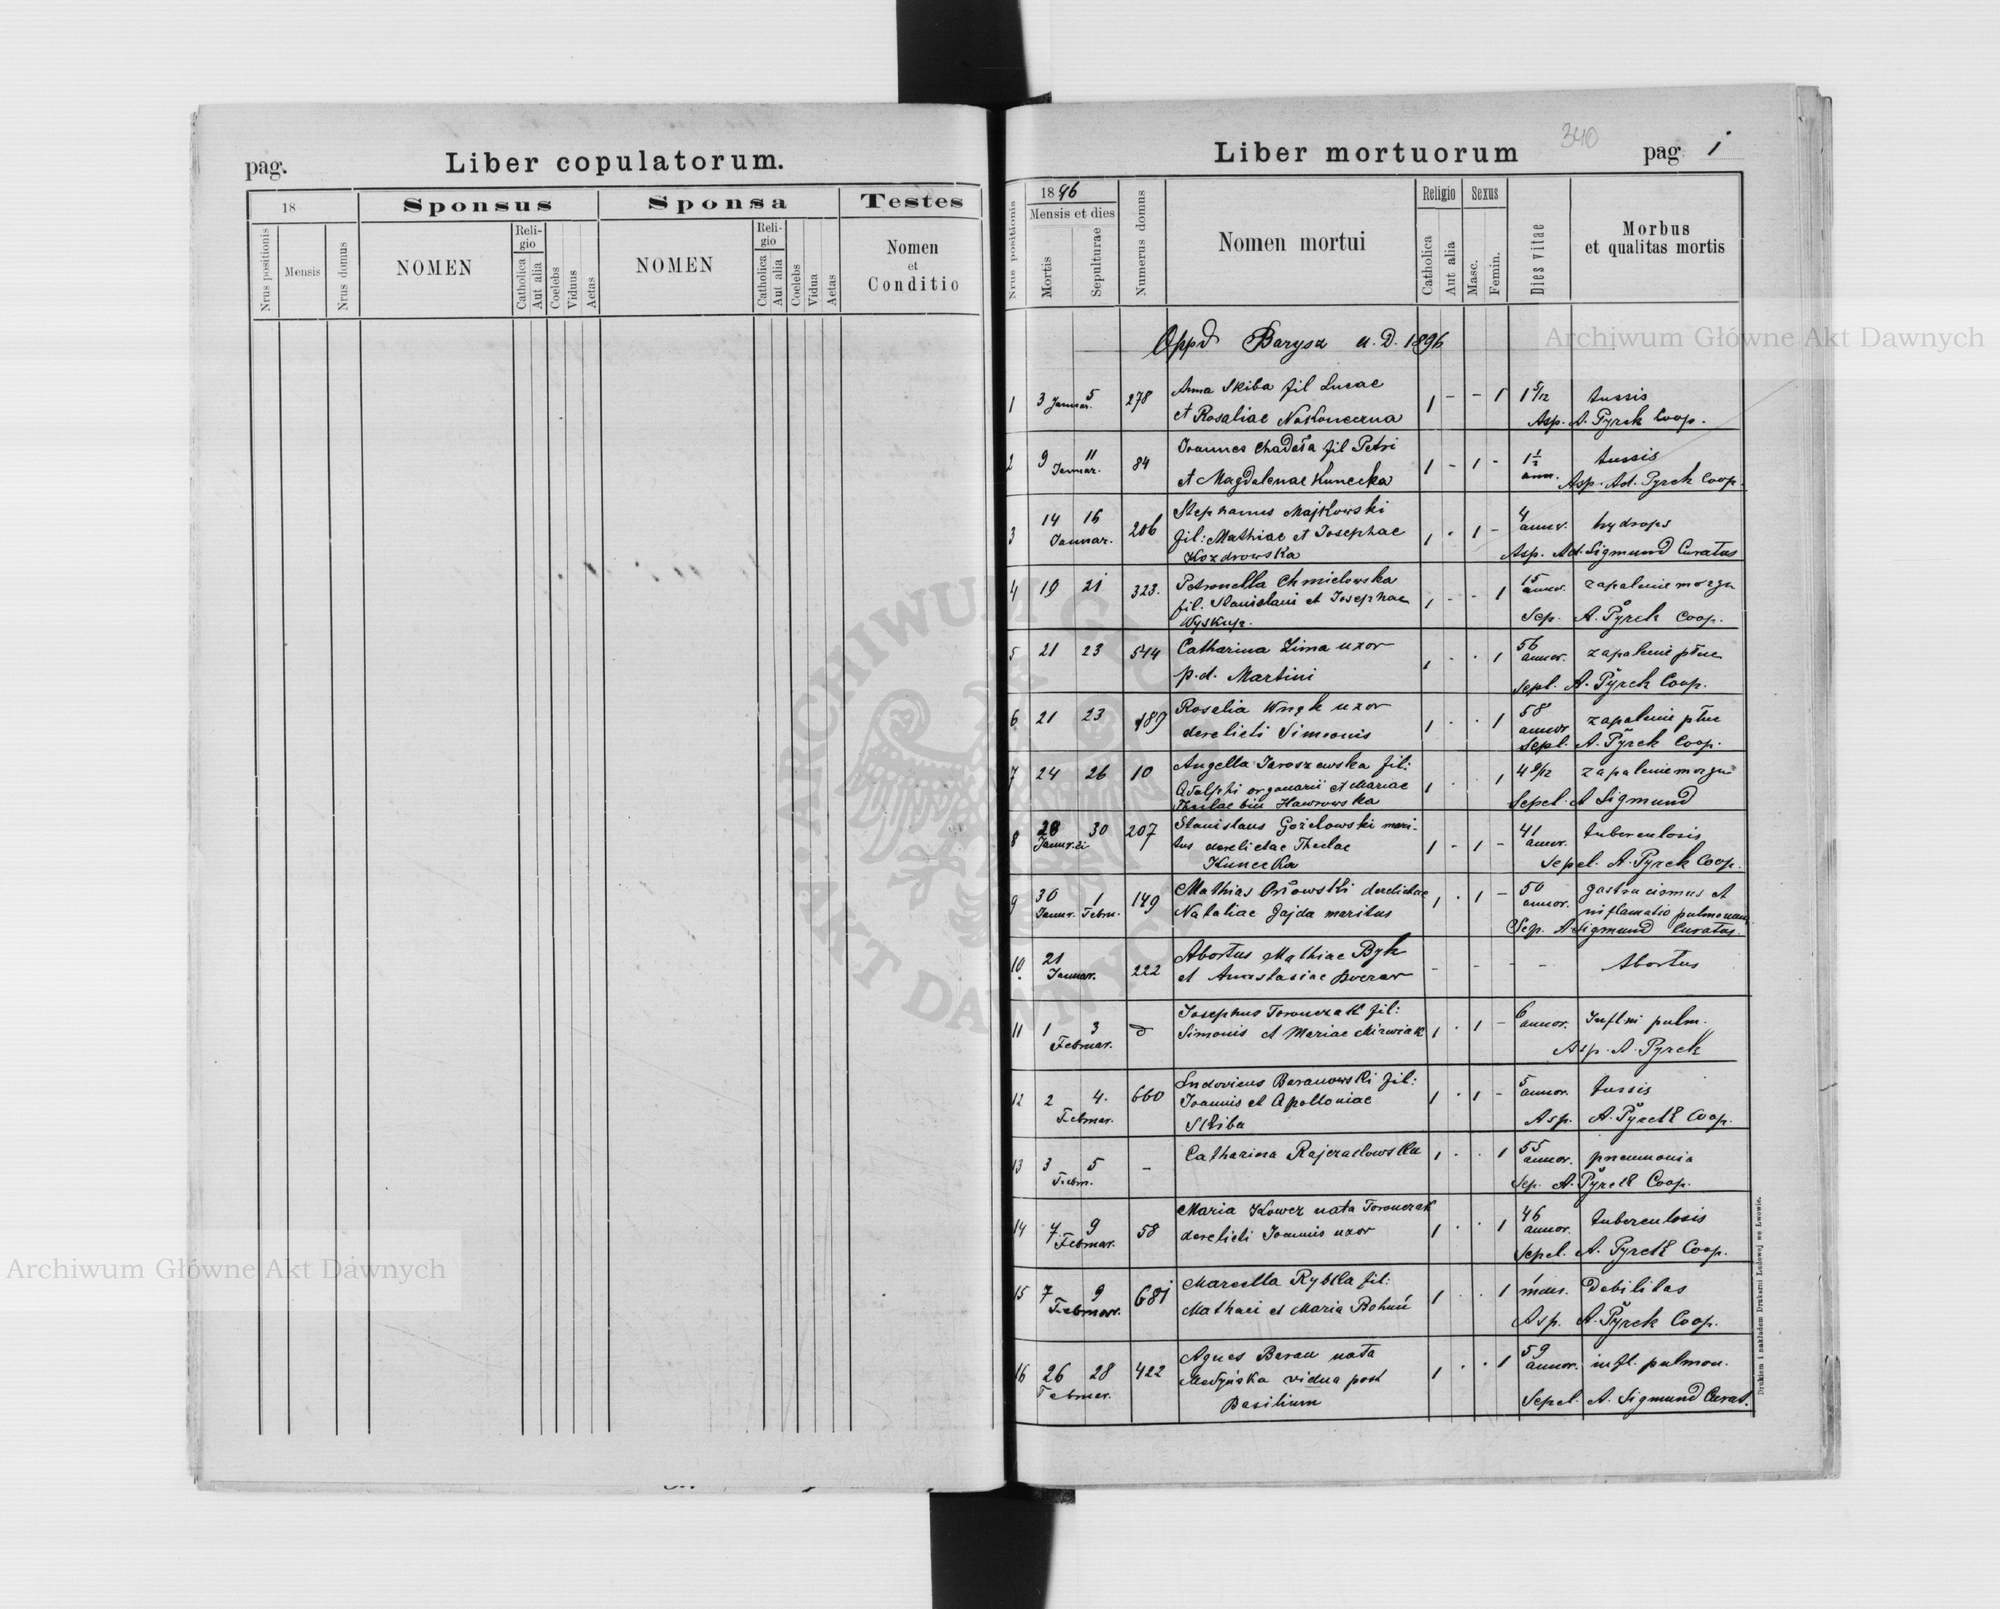 pag. Liber copulatorum.
18 Sponsus Sponsa Testes
Nrus positionis Mensis Nrus domus NOMEN Reli- gio Catholica Aut alia Coelebs Viduus Aetas NOMEN Reli- gio Catholica Aut alia Coelebs Vidua Aetas Nomen et Conditio
340
Liber mortuorum pag. 1
Nrus positionis 1896 Mensis et dies Mortis Sepulturae Numerus domus Nomen mortui Religio Catholica Aut alia Sexus Masc. Femin. Dies vitae Morbus et qualitas mortis
Oppd Barysz a. D. 1896
1 3 Januar. 5 278 Anna Skiba fil Lucae 1 - - 1 1 5/12 tussis
et Rosaliae Nakoneczna Asp. A. Pyrek Coop.
2 9 Januar. 11 84 Joannes Chadeła fil Petri 1 - 1 - 1 1/2 ann. tussis
et Magdalenae Kunecka Asp. Ad. Pyrek Coop.
3 14 16 Januar. 206 Stephanus Majkowski 1 . 1 - 4 annor. hydrops
fil: Mathiae et Josephae
Kozdrowska Asp. Ad. Sigmund Curatus
4 19 21 323. Petronella Chmielowska 1 - - 1 15 annor. zapalenie mozgu
fil. Stanislani et Josephae
Wyskup. Sep. A. Pyrek Coop.
5 21 23 544 Catharina Zima uxor 1 . . 1 56 annor. zapalenie płuc
p. d. Martini Sepl. A. Pyrek Coop.
6 21 23 189 Rosalia uxor 1 . . 1 58 annor zapalenie płuc
derelicti Simeonis Sepl. A. Pyrek Coop.
7 24 26 10 Angella Jaroszewska fil: 1 . 1 4 9/12 zapalenie mozgu
Adolphi organarii et Mariae
Theclae bin Hawrowska Sepel. A Sigmund
8 28 30 207 Stanislaus Gożelowski mari- 1 - 1 - 41 annor. tuberculosis
tus derelictae Theclae
Kunecka Sepel. A. Pyrek Coop.
9 30 Januar. 1 Febru. 149 Mathias Orłowski derelictae 1 . 1 - 50 annor. gastricismus et
Nataliae Gajda maritus inflamatio pulmonum
Sep. A Sigmund Curatus.
10. 21 Januar. 222 Abortus Mathiae Byk - - - - Abortus
et Anastasiae
11 1 3 Februar. Josephus Toronczak fil: 1 . 1 - 6 annor. Infl. pulm.
Simonis et Mariae Asp. A. Pyrek
12 2 4. Februar. 660 Ludovicus Baranowski fil: 1 . 1 - 5 annor. tussis
Joannis et Apolloniae
Skiba Asp. A. Pyrek Coop.
13 3 5 Febru. - Catharina Rajczakowska 1 . . 1 55 annor. pneumonia
Sep. A. Pyrek Coop.
14 7 9 Februar. 58 Maria Kowcz nata Toronczak 1 . . 1 46 annor. tuberculosis
derelicti Joannis uxor Sepel. A. Pyrek Coop.
15 7 9 Februar. 681 Marcella Rybka fil: 1 . . 1 1 mens. Debilitas
Mathaei et Maria Bohuń Asp. A. Pyrek Coop.
16 26 28 Februar. 422 Agnes Baran nata 1 . . 1 59 annor. infl. pulmon.
Medyńska vidua post
Basilium Sepel. A. Sigmund Curat.
Drukiem i nakładem Drukarni Ludowej we Lwowie.
Archiwum Główne Akt Dawnych
Archiwum Główne Akt Dawnych
ARCHIWUM GŁÓWNE AKT DAWNYCH